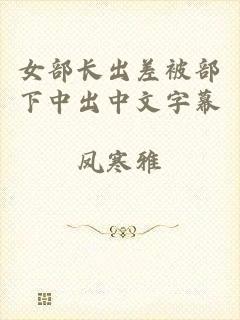 女部长出差被部
下中出中文字幕
凤寒雅